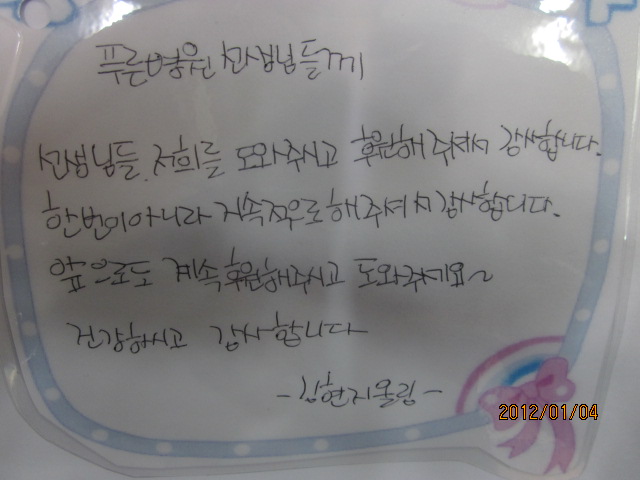 푸른병원 선생님들께
선생님들 저희를 도와주시고 후원해 주셔서 감사합니다.
한번이아니라 지속적으로해주셔서 감사합니다.
앞으로도 계속후원해주시고 도와주세요~
건강하시고 감사합니다
-김현지올림-
2012/01/04